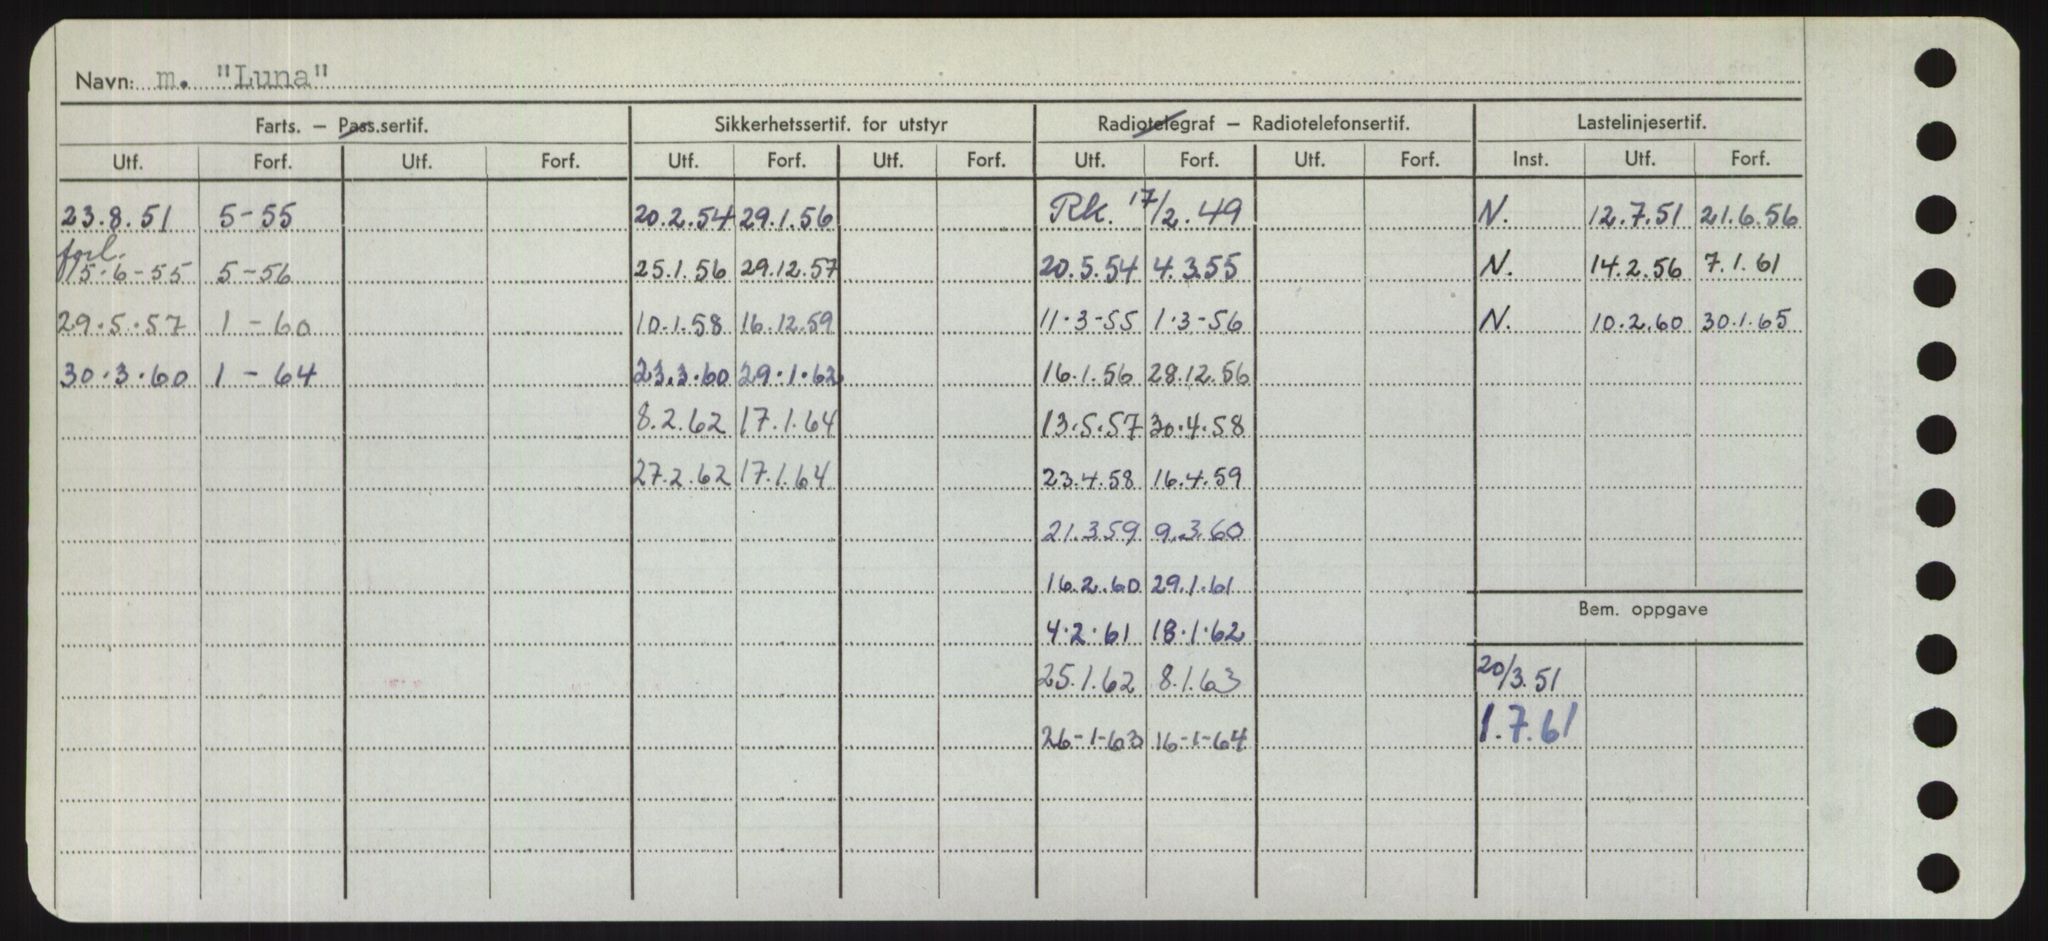 Navn: m. "Luna"
Farts. – Pass.sertif. Sikkerhetssertif. for utstyr Radiotelegraf – Radiotelefonsertif. Lastelinjesertif.
Utf. Forf. Utf. Forf. Utf. Forf. Utf. Forf. Utf. Forf. Utf. Forf. Inst. Utf. Forf.
23.8.51 5-55 20.2.54 29.1.56 Rk. 17/2.49 N. 12.7.51 21.6.56
forl.
15-6-55 5-56 25.1.56 29.12.57 20.5.54 4.3.55 N. 14.2.56 7.1.61
29.5.57 1-60 10.1.58 16.12.59 11-3-55 1-3-56 N. 10.2.60 30.1.65
30.3.60 1-64 23.3.60 29.1.62 16.1.56 28.12.56
8.2.62 17.1.64 13.5.57 30.4.58
27.2.62 17.1.64 23.4.58 16.4.59
21.3.59 9.3.60
16.2.60 29.1.61
Bem. oppgave
4.2.61 18.1.62
25.1.62 8.1.63 20/3.51
26-1-63 16-1-64 1.7.61